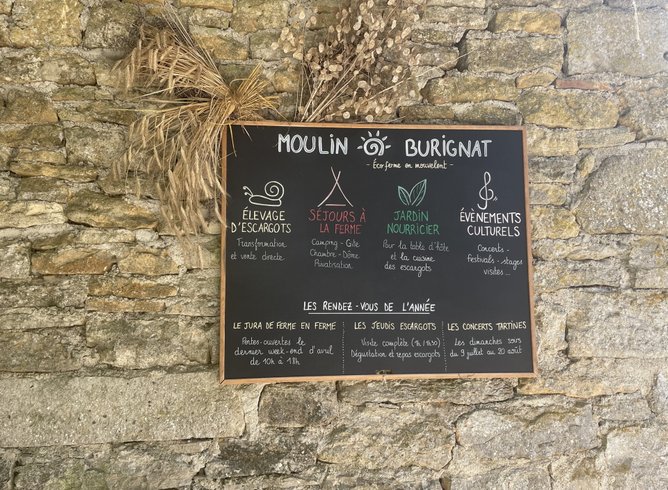 MOULIN BURIGNAT
- Écoferme en mouvement -
ÉLEVAGE
D'ESCARGOTS
Transformation
et vente directe
SÉJOURS À
LA FERME
Camping - Gîte
Chambre - Dôme
Privatisation
JARDIN
NOURRICIER
Pour la table d'hôte
et la cuisine
des escargots
ÉVÈNEMENTS
CULTURELS
Concerts -
festivals - stages
visites ...
LES RENDEZ-VOUS DE L'ANNÉE
LE JURA DE FERME EN FERME
Portes-ouvertes le
dernier week-end d'avril
de 10h à 18h
LES JEUDIS ESCARGOTS
Visite complète (1h/1h30)
Dégustation et repas escargots
LES CONCERTS TARTINES
Les dimanches soirs
du 9 juillet au 20 août